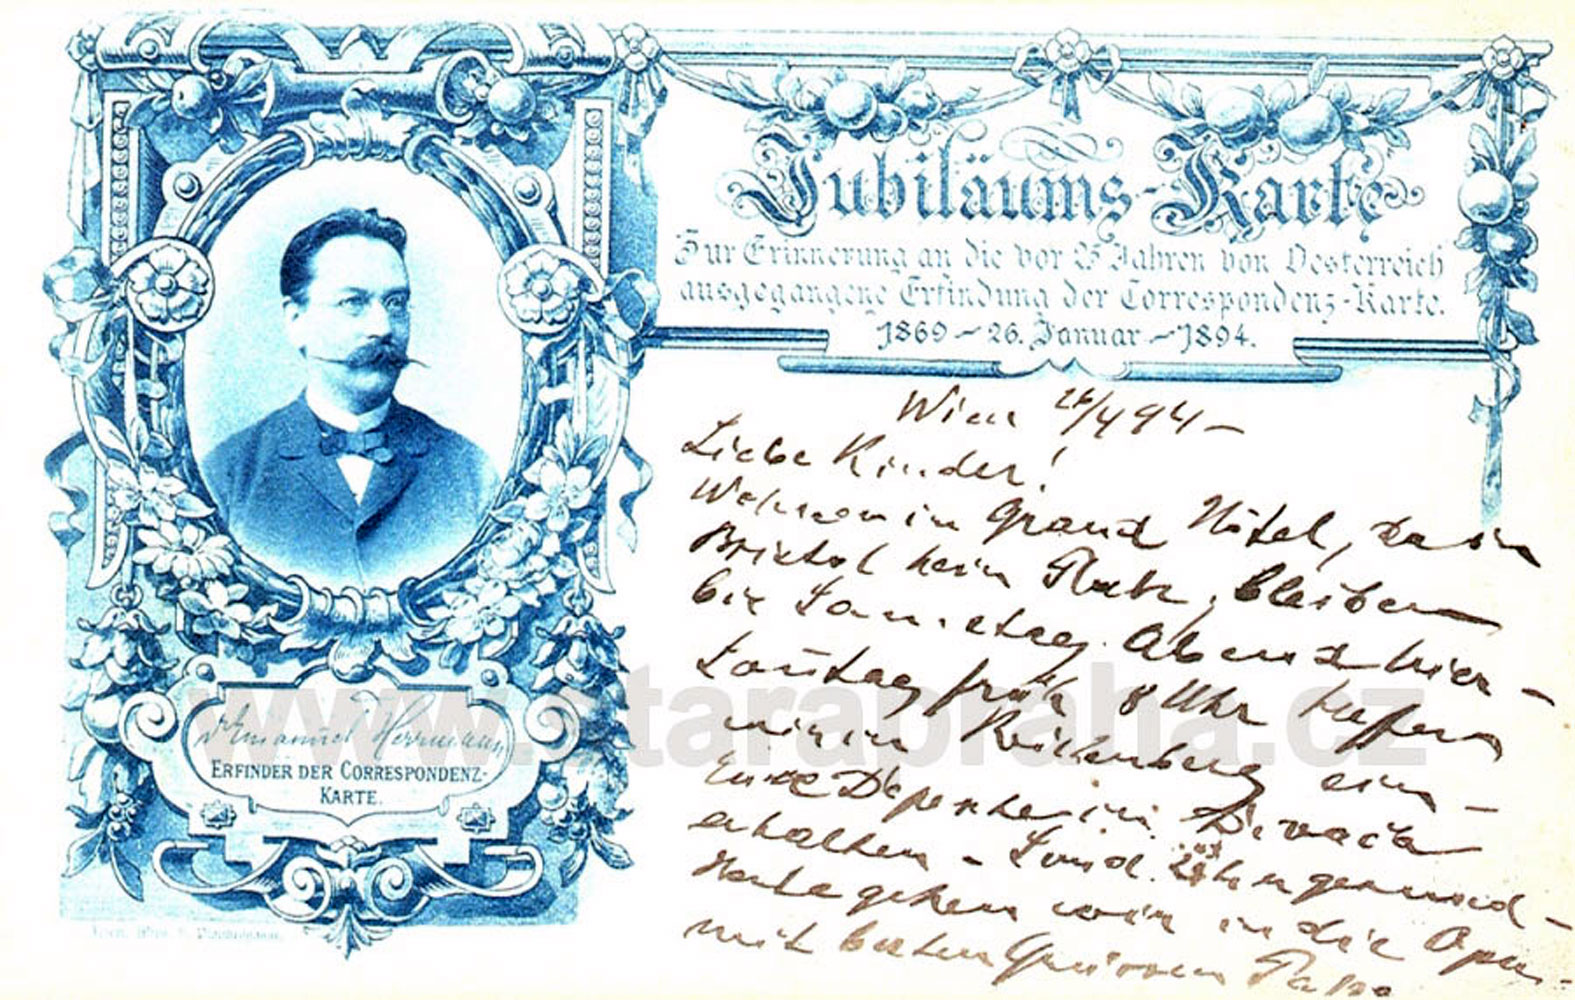 Jubiläums-Karte
Zur Erinnerung an die vor 25 Jahren von Oesterreich
ausgegangene Erfindung der Correspondenz-Karte.
1869 – 26. Januar – 1894.
Wien 26/4 94 –
Liebe Kinder!
Wohnen im Grand Hôtel, da in
Bristol kein Platz, bleiben
bis Samstag Abend hier –
Sonntag früh 8 Uhr treffen
wir in Reichenberg ein –
Eure Depesche in Divača
erhalten – Sind gesund –
Heute gehen wir in die Oper –
mit besten Grüssen Papa
Dr Emanuel Herrmann
ERFINDER DER CORRESPONDENZ-
KARTE.
www.starapraha.cz